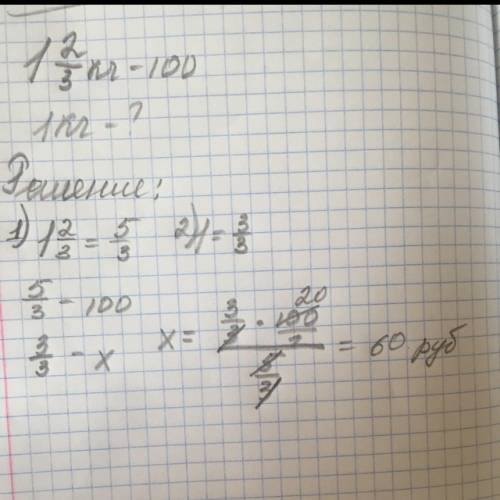 1 2/3 кг - 100
1 кг - ?
Решение:
1) 1 2/3 = 5/3   2) 1 = 3/3
5/3 - 100
3/3 - x   x = (3/3 · 100/1) / (5/3) = 60 руб
20